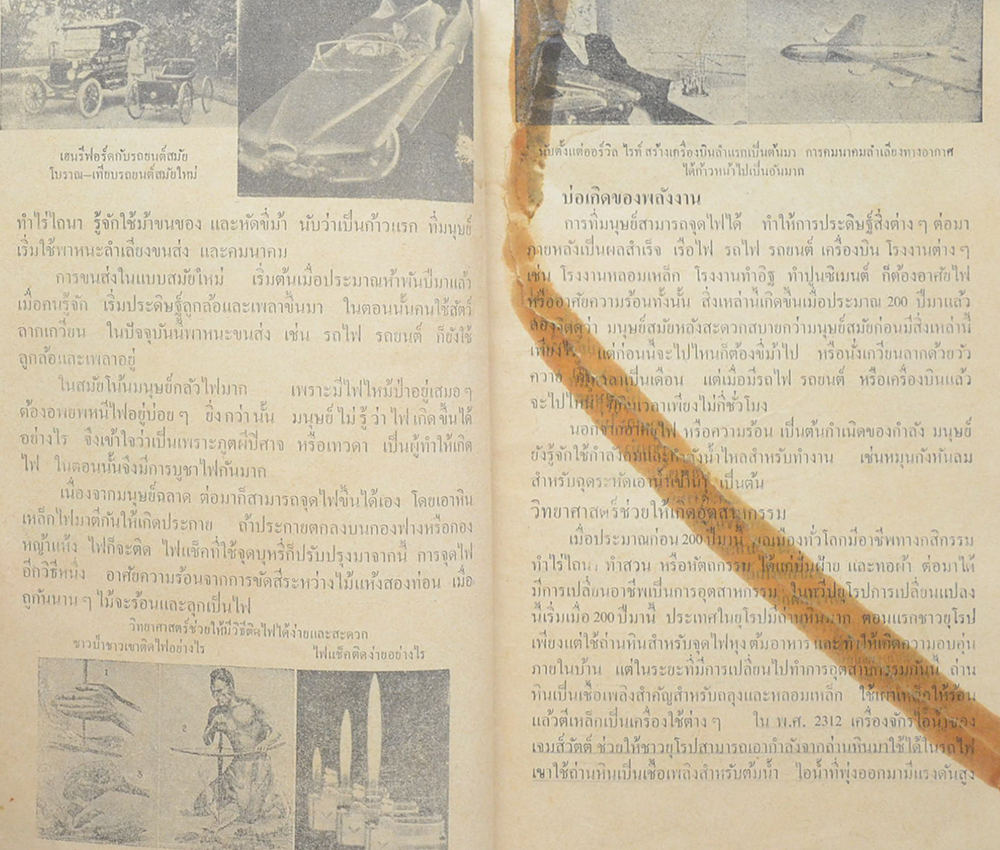 เฮนรี่ฟอร์ดกับรถยนต์สมัย
โบราณ—เทียบรถยนต์สมัยใหม่
ทำไร่ไถนา รู้จักใช้ม้าขนของ และหัดขี่ม้า นับว่าเป็นก้าวแรก ที่มนุษย์
เริ่มใช้พาหนะลำเลียงขนส่ง และคมนาคม
การขนส่งในแบบสมัยใหม่ เริ่มต้นเมื่อประมาณห้าพันปีมาแล้ว
เมื่อคนรู้จัก เริ่มประดิษฐ์ลูกล้อและเพลาขึ้นมา ในตอนนั้นคนใช้สัตว์
ลากเกวียน ในปัจจุบันนี้พาหนะขนส่ง เช่น รถไฟ รถยนต์ ก็ยังใช้
ลูกล้อและเพลาอยู่
ในสมัยโน้นมนุษย์กลัวไฟมาก เพราะมีไฟไหม้ป่าอยู่เสมอ ๆ
ต้องอพยพหนีไฟอยู่บ่อย ๆ ยิ่งกว่านั้น มนุษย์ไม่รู้ว่าไฟเกิดขึ้นได้
อย่างไร จึงเข้าใจว่าเป็นเพราะภูตผีปิศาจ หรือเทวดา เป็นผู้ทำให้เกิด
ไฟ ในตอนนั้นจึงมีการบูชาไฟกันมาก
เนื่องจากมนุษย์ฉลาด ต่อมาก็สามารถจุดไฟขึ้นได้เอง โดยเอาหิน
เหล็กไฟมาตีกันให้เกิดประกาย ถ้าประกายตกลงบนกองฟางหรือกอง
หญ้าแห้ง ไฟก็จะติด ไฟแช็คที่ใช้จุดบุหรี่ก็ปรับปรุงมาจากนี้ การจุดไฟ
อีกวิธีหนึ่ง อาศัยความร้อนจากการขัดสีระหว่างไม้แห้งสองท่อน เมื่อ
ถูกันนาน ๆ ไม้จะร้อนและลุกเป็นไฟ
วิทยาศาสตร์ช่วยให้มีวิธีติดไฟได้ง่ายและสะดวก
ชาวป่าชาวเขาติดไฟอย่างไร
ไฟแช็คติดง่ายอย่างไร
1
2
3
นับตั้งแต่ออร์วิล ไรท์ สร้างเครื่องบินลำแรกเป็นต้นมา การคมนาคมลำเลียงทางอากาศ
ได้ก้าวหน้าไปเป็นอันมาก
บ่อเกิดของพลังงาน
การที่มนุษย์สามารถจุดไฟได้ ทำให้การประดิษฐ์สิ่งต่าง ๆ ต่อมา
ภายหลังเป็นผลสำเร็จ เรือไฟ รถไฟ รถยนต์ เครื่องบิน โรงงานต่าง ๆ
เช่น โรงงานหลอมเหล็ก โรงงานทำอิฐ ทำปูนซิเมนต์ ก็ต้องอาศัยไฟ
หรืออาศัยความร้อนทั้งนั้น สิ่งเหล่านี้เกิดขึ้นเมื่อประมาณ 200 ปีมาแล้ว
ลองคิดดูว่า มนุษย์สมัยหลังสะดวกสบายกว่ามนุษย์สมัยก่อนมีสิ่งเหล่านี้
เพียงไร แต่ก่อนนี้จะไปไหนก็ต้องขี่ม้าไป หรือนั่งเกวียนลากด้วยวัว
ควาย เป็นเดือน แต่เมื่อมีรถไฟ รถยนต์ หรือเครื่องบินแล้ว
จะไปไหน เวลาเพียงไม่กี่ชั่วโมง
นอกจากอาศัยไฟ หรือความร้อน เป็นต้นกำเนิดของกำลัง มนุษย์
ยังรู้จักใช้กำลังลมและกำลังน้ำไหลสำหรับทำงาน เช่นหมุนกังหันลม
สำหรับฉุดระหัดเอาน้ำเข้านา เป็นต้น
วิทยาศาสตร์ช่วยให้เกิดอุตสาหกรรม
เมื่อประมาณก่อน 200 ปีมานี้ พลเมืองทั่วโลกมีอาชีพทางกสิกรรม
ทำไร่ไถนา ทำสวน หรือหัตถกรรม ได้แก่ปั่นฝ้าย และทอผ้า ต่อมาได้
มีการเปลี่ยนอาชีพเป็นการอุตสาหกรรม ในทวีปยุโรปการเปลี่ยนแปลง
นี้เริ่มเมื่อ 200 ปีมานี้ ประเทศในยุโรปมีถ่านหินมาก ตอนแรกชาวยุโรป
เพียงแต่ใช้ถ่านหินสำหรับจุดไฟหุงต้มอาหาร และทำให้เกิดความอบอุ่น
ภายในบ้าน แต่ในระยะที่มีการเปลี่ยนไปทำการอุตสาหกรรมกันนี้ ถ่าน
หินเป็นเชื้อเพลิงสำคัญสำหรับถลุงและหลอมเหล็ก ใช้เผาเหล็กให้ร้อน
แล้วตีเหล็กเป็นเครื่องใช้ต่าง ๆ ใน พ.ศ. 2312 เครื่องจักรไอน้ำของ
เจมส์วัตต์ ช่วยให้ชาวยุโรปสามารถเอากำลังจากถ่านหินมาใช้ได้ในรถไฟ
เขาใช้ถ่านหินเป็นเชื้อเพลิงสำหรับต้มน้ำ ไอน้ำที่พุ่งออกมามีแรงดันสูง